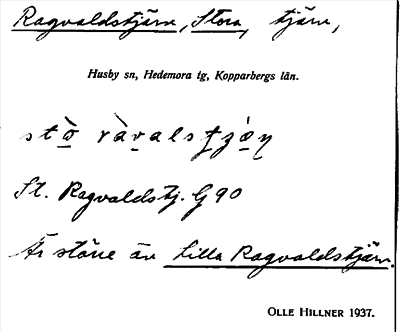 Ragvaldstjärn, Stora, tjärn,
Husby sn, Hedemora tg, Kopparbergs län.
St. Ragvaldstj. G 90
Är större än Lilla Ragvaldstjärn.
OLLE HILLNER 1937.